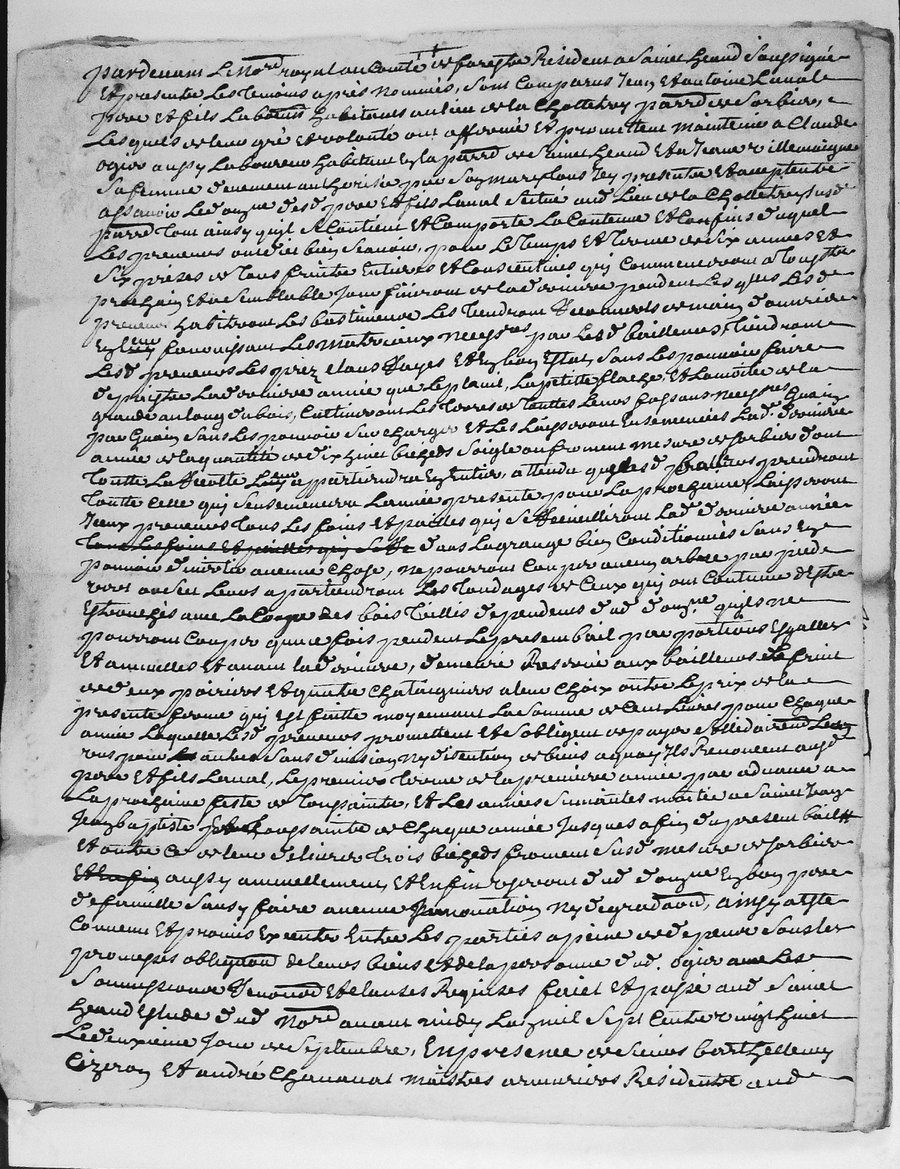 pardevant le Nore royal au Comté de forestz Résident a Saint heand Soussigné
Et présents les témoins après Nommés, Sont Comparus Jean Et antoine Laval
père Et fils Laboureurs habitants au lieu de la Chottetrey parre de Sorbiers,
Lesquels de leur gré Et volonté ont affermé Et promettent maintenir a Claude
Ogier aussy Laboureur habitant En la parre de Saint heand Et a Jeanne villemaigne
Sa femme duement authorisée par Son mary tous Icy présents Et acceptants
assavoir Le domne desd. père Et fils Laval Scitué aud. Lieu de la Chottetrey susd.
parre Tout ainsy qu'il Se Contient Et Comporte La Contenue Et Confins duquel
Les preneurs ont dit bien Scavoir, pour Le Temps Et Terme de Six années Et
Six prises de Tous fruits Entières Et Consécutives qui Commenceront a Toussts
prochain Et a Semblable Jour finiront de la dernière pendant Les qlles Les d.
preneurs habiteront Les bastiments Les tiendront Recouverts de main d'ouvrier
fournissant Les matériaux Necessres par Les d. bailleurs, tiendront
Lesd. preneurs Les prez clous Et En bon Estat, Sans Les pouvoir faire
dépaistre La dernière année que le plail, La petite flache, Et La moitié de la
grande au long du bois, Cultiveront Les terres de touttes Leurs façons Necessres
par Sans Les pouvoir Surcharger Et Les Laisseront Ensemencées Lad. dernière
année de la quantité de dix huit bichets Seigle ou froment mesure de Sorbiers dont
toutte La Récolte Leur appartiendra En Entier, attendu qu'lesd. prendront
toutte Celle qui S'ensemencera L'année présente pour La prochaine, Laisseront
Iceux preneurs tous Les foins Et pailles qui Se Recueilliront Lad. dernière année
tous Les foins Et pailles qui Se Re dans La grange bien Conditionnés Sans En
pouvoir divertir aucune Chose, ne pourront Couper aucun arbre par pied
vert ou Sec Leurs appartiendront Les Tondages de Ceux qui ont Coutume d'Estre
Estronchés avec La Coupe des bois Taillis dépendants dud. domne. qu'ils ne
pourront Couper qu'une fois pendant Le présent bail par portions Egalles
Et annuelles Et avant La dernière, demeure Reservé aux bailleurs Le fruit
de deux poiriers Et quatre Chataigniers a leur Choix outre Le prix de la
présente ferme qui Est faitte moyennant La Somme de Cent Livres pour Chaque
année Laquelle Lesd. preneurs promettent Et S'obligent de payer
l'un pour autre Sans division Ny discution de biens a quoy Ils Renoncent auxd.
père Et fils Laval, Le premier Terme de la première année par advance a
La prochaine feste de Toussaints, Et Les années Suivantes moitié a Saint Jean
Jean baptiste Toussaints de Chaque année Jusques a fin du présent bail
Et outre Ce de leur délivrer Trois bichets froment Susd. mesure de Sorbiers
Et Enfin aussy annuellement, Et Enfin Jouiront dud. domne En bon père
de famille Sans y faire aucune Innovation Ny dégradaon, ainsy a Esté
Convenu Et promis Exécuter Entre Les parties a peine de dépens Sous Les
promesses obligaon de Leurs biens Et de La personne dud. Ogier avec Les
Soumissions Renonaon Et Clauses Requises fait Et passé aud. Saint
heand Estude dud. Nore avant midy L'an mil Sept Cents vingt huit
Le deuxième Jour de Septembre, En présence de Sieurs barthellemy
Cizeron Et andré Chavanat maistres armuriers Résidents aud.